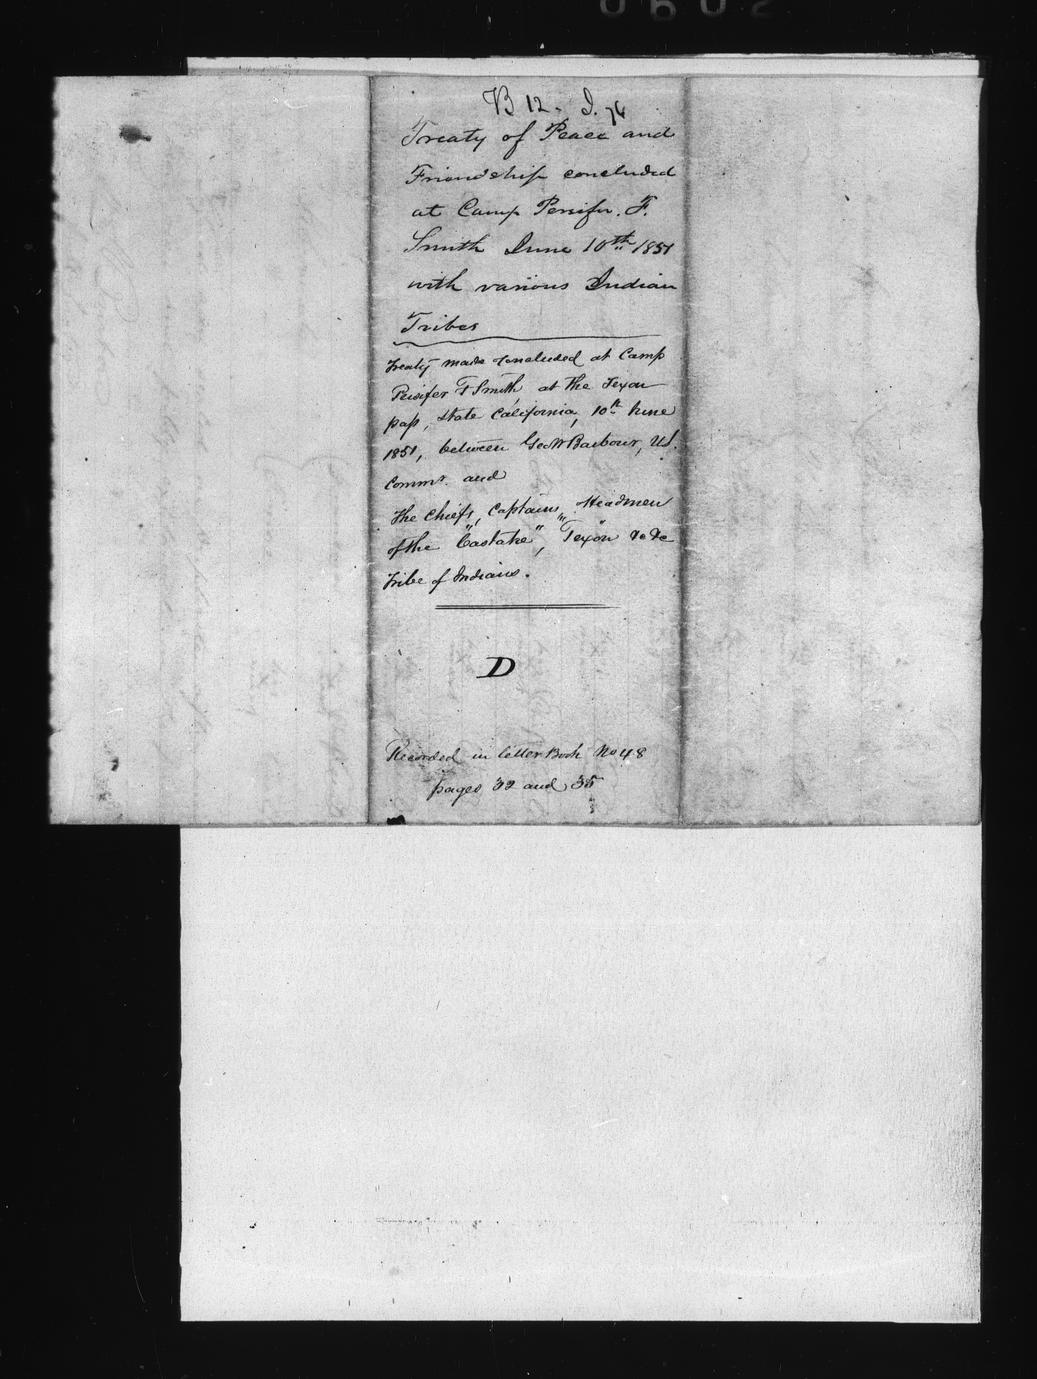 B 12. I. 76
Treaty of Peace and
Friendship concluded
at Camp Persifer. F.
Smith June 10th 1851
with various Indian
Tribes
Treaty made & concluded at Camp
Persifer F Smith, at the Texon
pass, State California, 10th June
1851, between Geo W Barbour, U.S.
Commr. and
The Chiefs, Captains, Headmen
of the "Castake", "Texon" &c &c
Tribe of Indians.
D
Recorded in letter Book No 48
pages 32 and 35